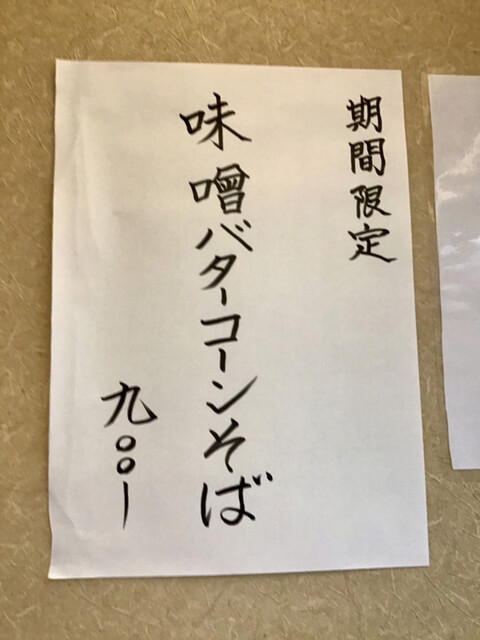 期間限定
味噌バターコーンそば
九〇〇ー